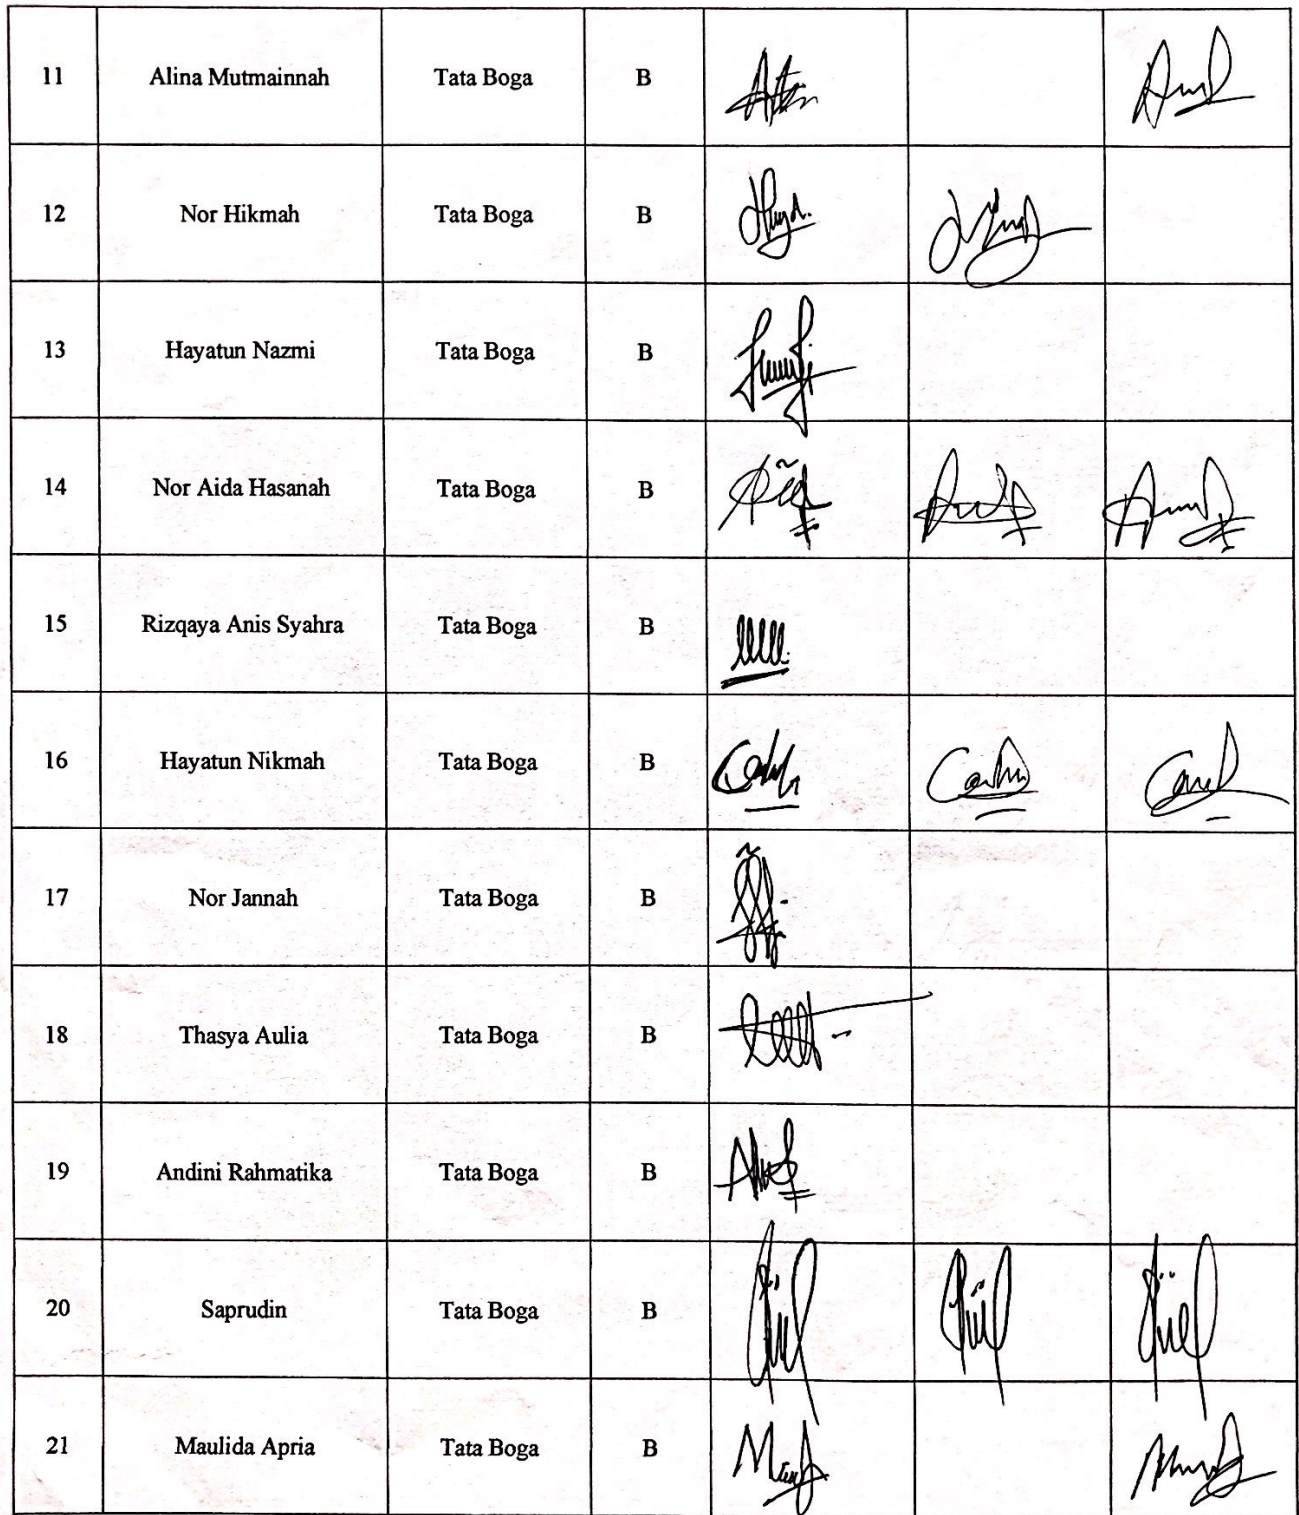 11 Alina Mutmainnah Tata Boga B
12 Nor Hikmah Tata Boga B
13 Hayatun Nazmi Tata Boga B
14 Nor Aida Hasanah Tata Boga B
15 Rizqaya Anis Syahra Tata Boga B
16 Hayatun Nikmah Tata Boga B
17 Nor Jannah Tata Boga B
18 Thasya Aulia Tata Boga B
19 Andini Rahmatika Tata Boga B
20 Saprudin Tata Boga B
21 Maulida Apria Tata Boga B